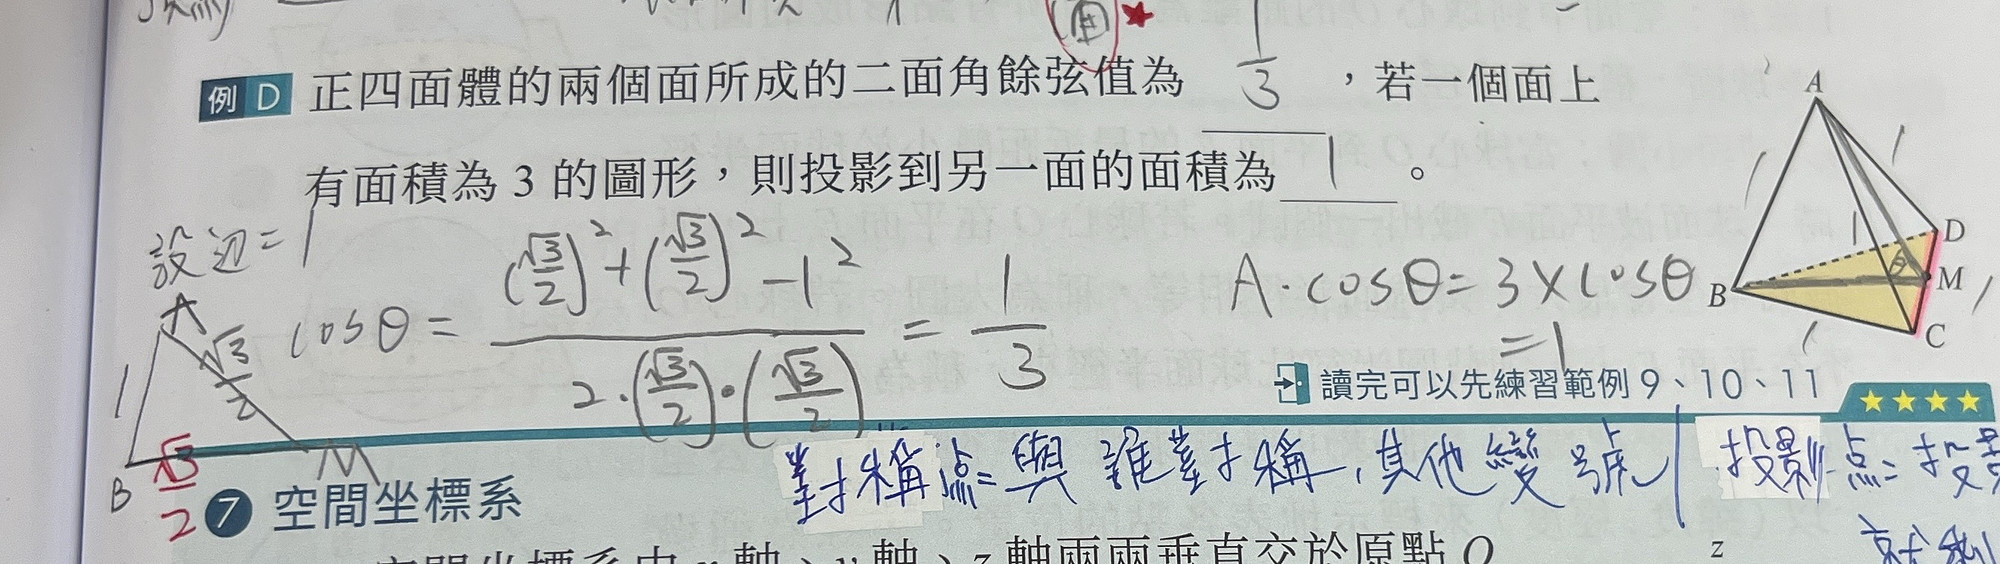 例 D 正四面體的兩個面所成的二面角餘弦值為 1/3 ,若一個面上
有面積為 3 的圖形,則投影到另一面的面積為 1 。
設边=1
cosθ = ((√3/2)²+(√3/2)²-1²)/(2·(√3/2)·(√3/2)) = 1/3
A·cosθ=3×cosθ
=1
A
1
√3/2
B
√3/2
M
A
1
1
1
D
B
θ
M
1
1
C
讀完可以先練習範例 9、10、11
對稱点=與誰對稱,其他變號
投影点=投影
7 空間坐標系
z